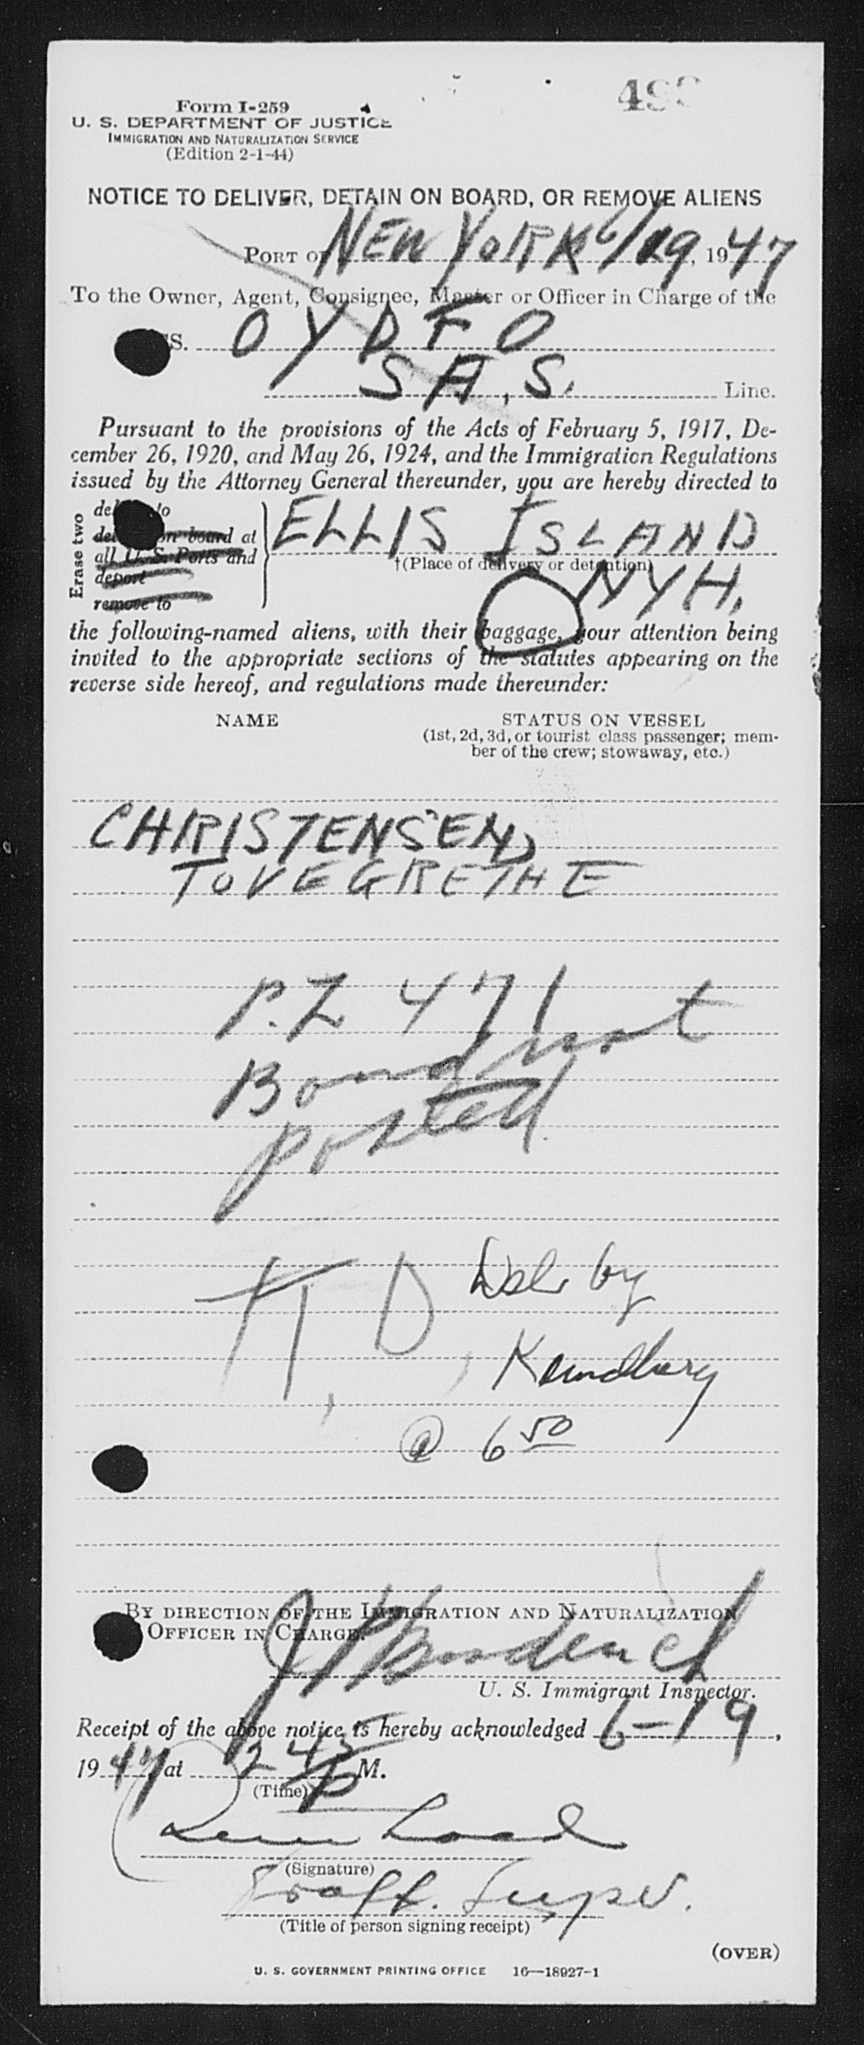 49
Form I-259
U. S. DEPARTMENT OF JUSTICE
IMMIGRATION AND NATURALIZATION SERVICE
(Edition 2-1-44)
NOTICE TO DELIVER, DETAIN ON BOARD, OR REMOVE ALIENS
PORT OF NEW YORK 6/19, 1947
To the Owner, Agent, Consignee, Master or Officer in Charge of the
SS. OYDFO
S.A.S. Line.
Pursuant to the provisions of the Acts of February 5, 1917, De-
cember 26, 1920, and May 26, 1924, and the Immigration Regulations
issued by the Attorney General thereunder, you are hereby directed to
Erase two
deliver to
detain on board at
all U. S. Ports and
deport
remove to
ELLIS ISLAND
†(Place of delivery or detention)
NYH.
the following-named aliens, with their baggage, your attention being
invited to the appropriate sections of the statutes appearing on the
reverse side hereof, and regulations made thereunder:
NAME STATUS ON VESSEL
(1st, 2d, 3d, or tourist class passenger; mem-
ber of the crew; stowaway, etc.)
CHRISTENSEN,
TOVE GRETHE
P.L 471
Bond not
posted
T, D, Delr by
@ 6 50
BY DIRECTION OF THE IMMIGRATION AND NATURALIZATION
OFFICER IN CHARGE.
U. S. Immigrant Inspector.
Receipt of the above notice is hereby acknowledged 6-19,
1947, at 2 45 P M.
(Time)
(Signature)
Traff. Super.
(Title of person signing receipt)
(OVER)
U. S. GOVERNMENT PRINTING OFFICE 16—18927-1